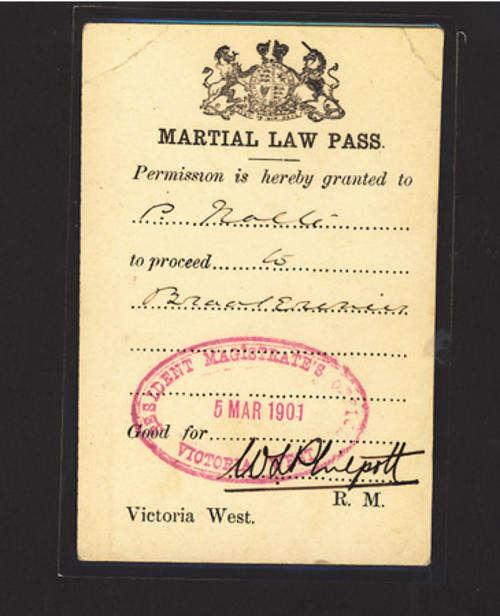 MARTIAL LAW PASS.
Permission is hereby granted to
P.
to proceed to
RESIDENT MAGISTRATE'S
5 MAR 1901
Good for
VICTORIA WEST
W L Philpott
R. M.
Victoria West.